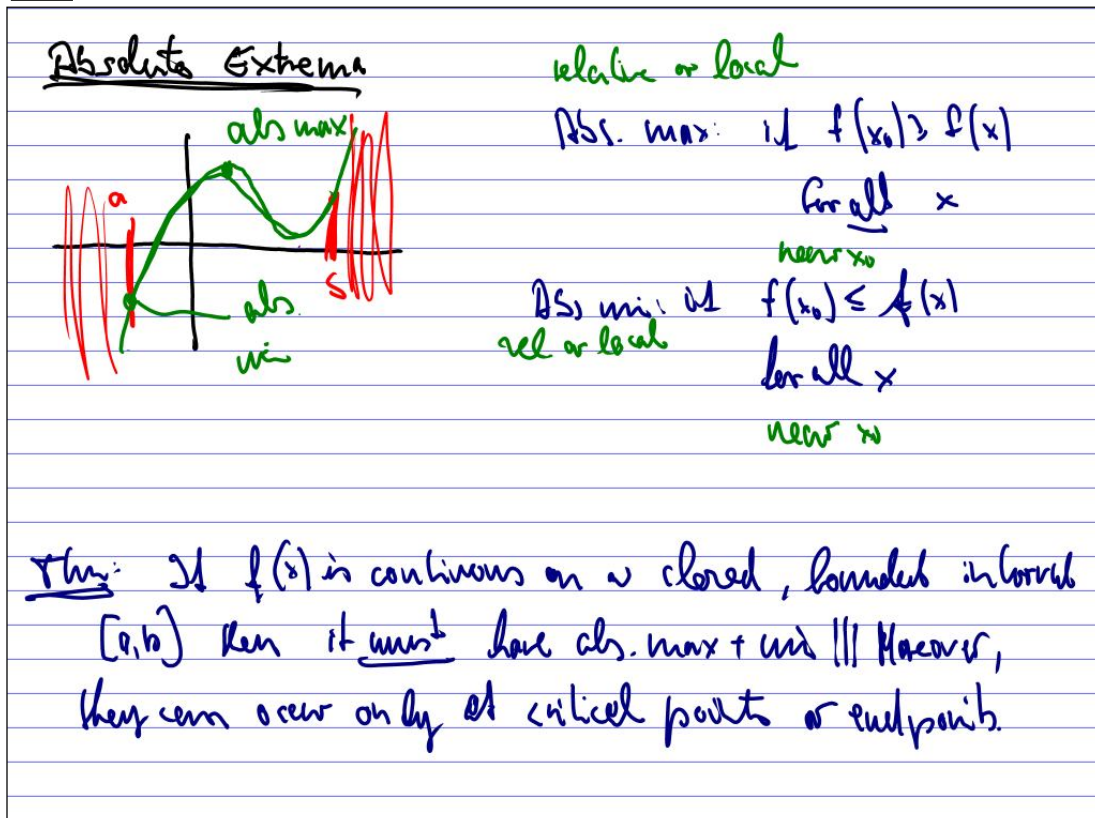 Absolute Extrema
relative or local
abs max
Abs. max: if f(x₀) ≥ f(x)
for all x
near x₀
a
b
abs.
min
Abs min: if f(x₀) ≤ f(x)
rel or local
for all x
near x₀
Thm: If f(x) is continous on a closed, bounded interval
[a,b] then it must have abs. max + min !!! Moreover,
they can occur only at critical points or endpoints.